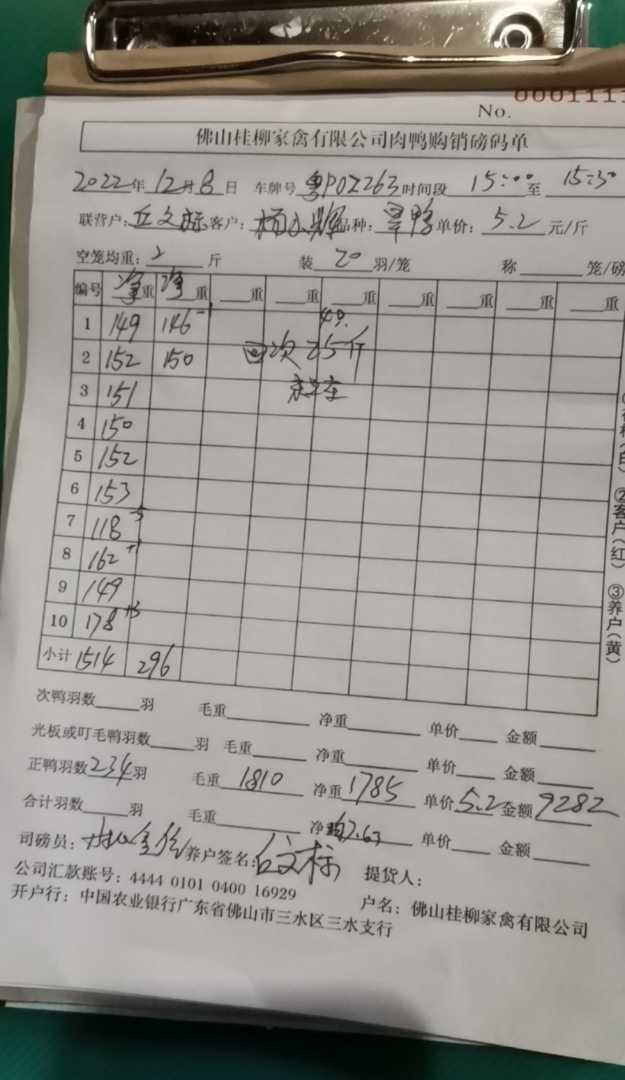 0001111
No.
佛山桂柳家禽有限公司肉鸭购销磅码单
2022年12月8日 车牌号 粤P0Z263 时间段 15:00 至 15:30
联营户: 客户: 品种: 单价: 5.2 元/斤
空笼均重: 2 斤 装 20 羽/笼 称 笼/磅
编号 净重 净重 重 重 重 重 重 重 重
1 149 146 -1 4只
2 152 150 回次 25斤
3 151
4 150
5 152
6 153
7 118 -5
8 162 +1
9 149
10 178 +3
小计 1514 296
次鸭羽数 羽 毛重 净重 单价 金额
光板或叮毛鸭羽数 羽 毛重 净重 单价 金额
正鸭羽数 234 羽 毛重 1810 净重 1785 单价 5.2 金额 9282
合计羽数 羽 毛重 净 均7.63 单价 金额
司磅员: 养户签名: 提货人:
公司汇款账号: 4444 0101 0400 16929 户名: 佛山桂柳家禽有限公司
开户行: 中国农业银行广东省佛山市三水区三水支行
②客户(红) ③养户(黄)